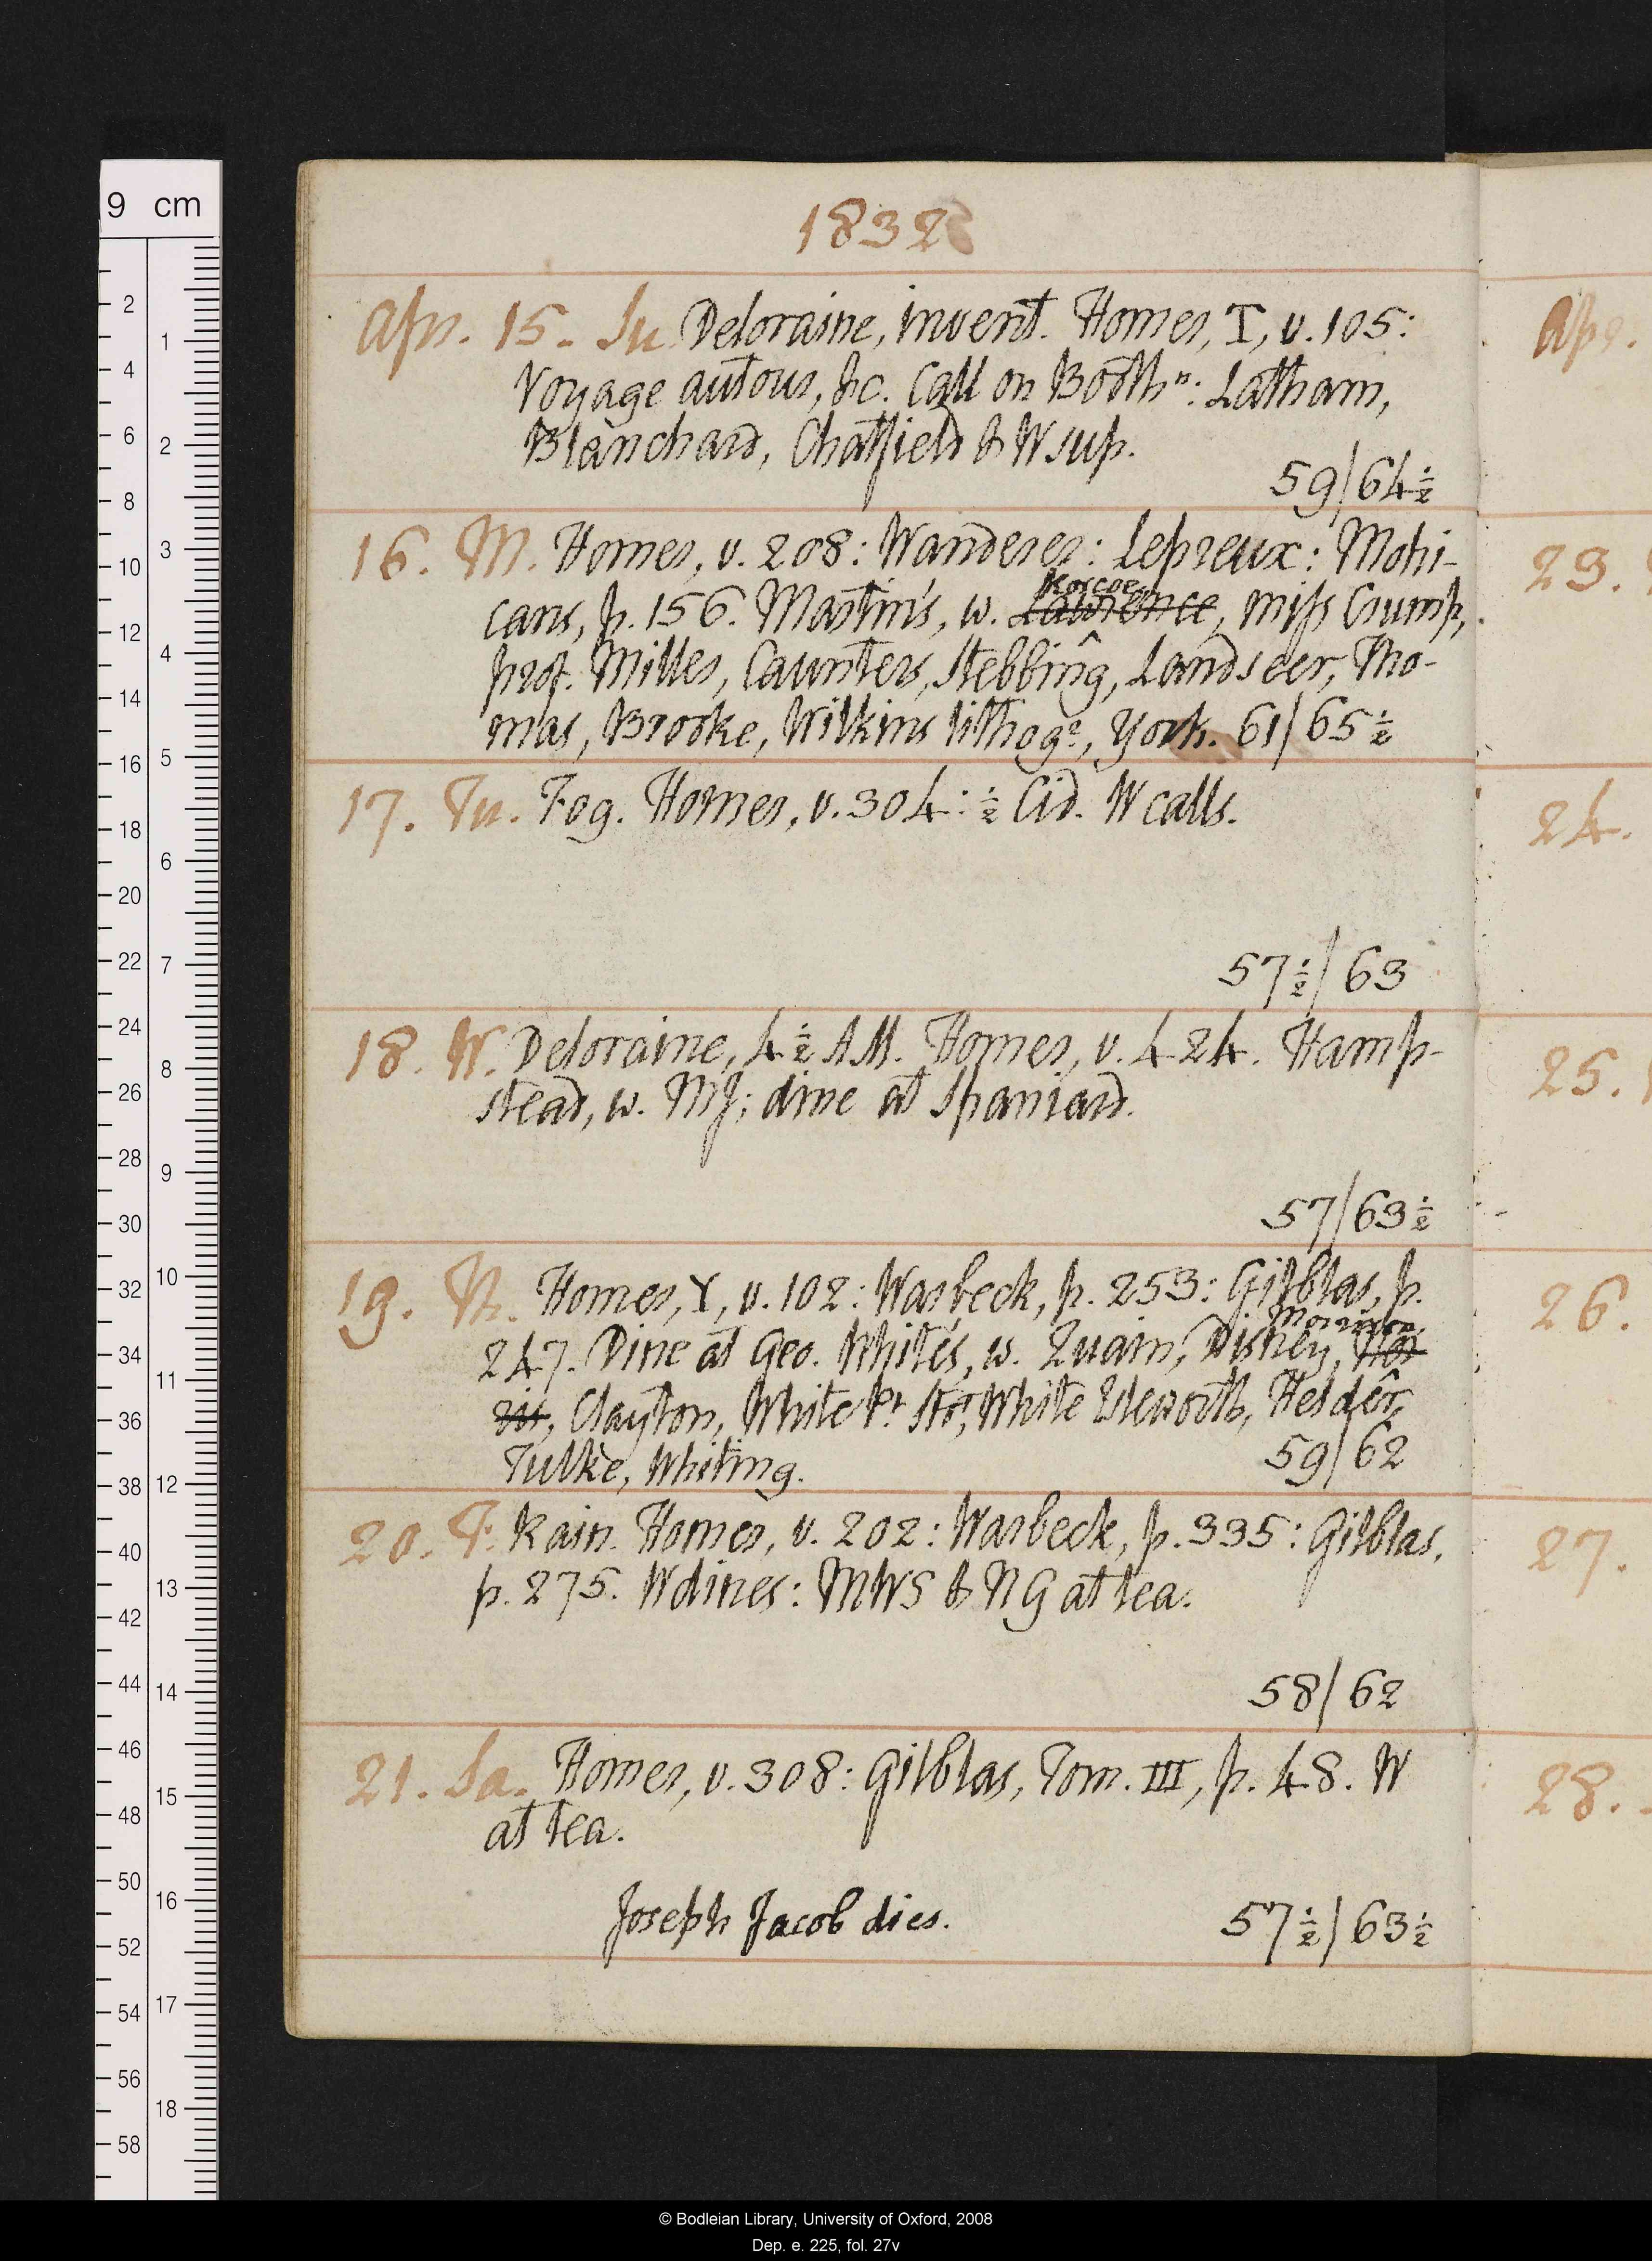 9 cm
1832
Apr. 15. Su. Deloraine, invent. Homer, I, v. 105:
Voyage autour, &c. Call on Boothn: Latham,
Blanchard, Chatfield & W sup.
59/64½
16. M. Homer, v. 208: Wanderer: Lepreux: Mohi-
Roscoe
cans, p. 156. Martin's, w. Lawrence, miss Crump,
prof. Milles, Caunters, Stebbing, Landseer, Tho-
mas, Brooke, Wilkins lithogr, York. 61/65½
17. Tu. Fog. Homer, v. 304: ½ Cid. W calls.
57½/63
18. W. Deloraine, 4½ AM. Homer, v. 424. Hamp-
stead, w. MJ; dine at Spaniard.
57/63½
19. Th. Homer, Y, v. 102: Warbeck, p. 253: Gilblas, p.
Morrison
247. Dine at Geo. White's, w. Quain, Disney, Har
ris, Clayton, White Pt Str, White Isleworth, Helder,
Tulke, Whiting. 59/62
20. F. Rain. Homer, v. 202: Warbeck, p. 335: Gilblas,
p. 275. W dines: MWS & NG at tea.
58/62
21. Sa. Homer, v. 308: Gilblas, Tom. III, p. 48. W
at tea.
Joseph Jacob dies. 57½/63½
Apr.
23.
24.
25.
26.
27.
28.
© Bodleian Library, University of Oxford, 2008
Dep. e. 225, fol. 27v